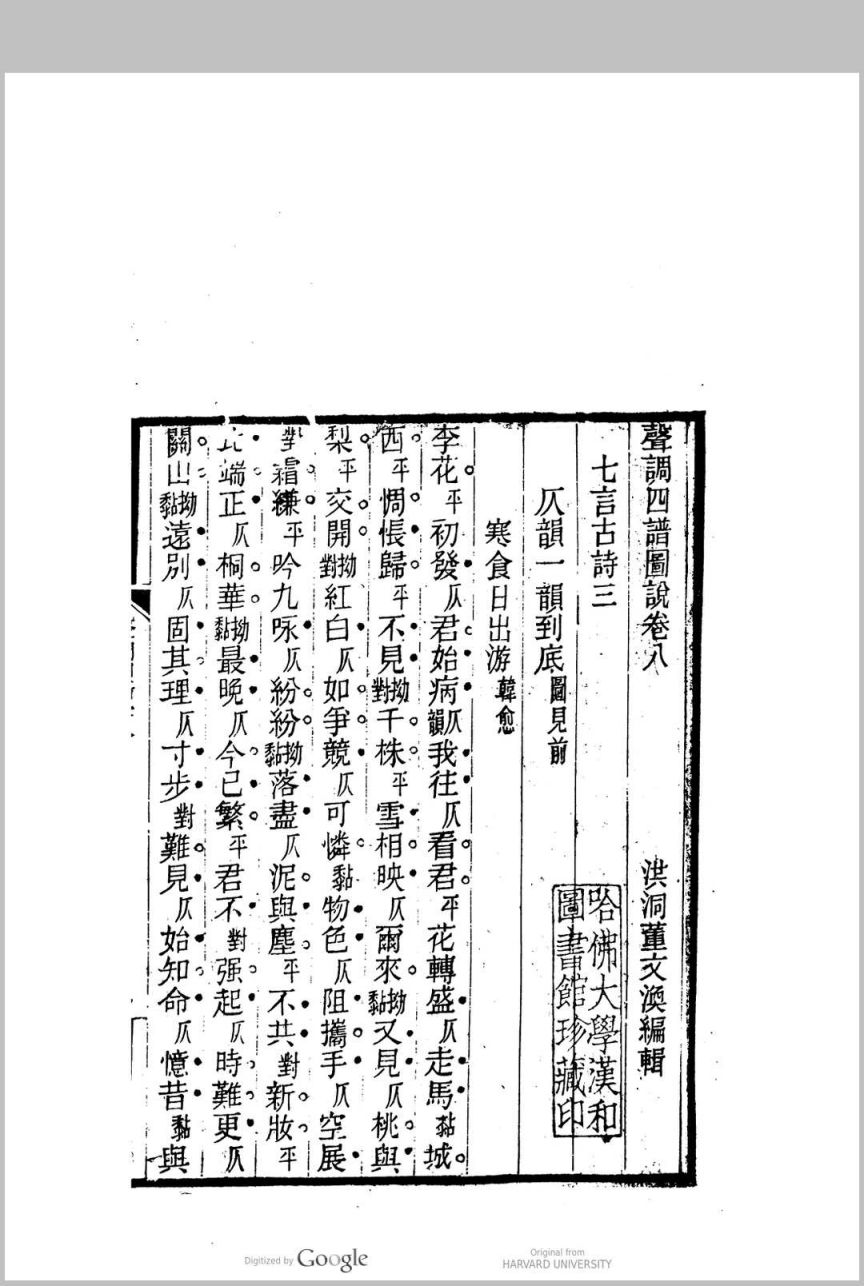 聲調四譜圖說卷八
洪洞董文渙編輯
七言古詩三
仄韻一韻到底圖見前
寒食日出游韓愈
李花平初發仄君始病仄韻我往仄看君平花轉盛仄走馬黏城
西平惆悵歸平不見拗對千株平雪相映仄爾來拗黏又見仄桃與
梨平交開拗對紅白仄如爭競仄可憐黏物色仄阻攜手仄空展
霜縑平吟九咏仄紛紛拗黏落盡仄泥與塵平不共對新妝平
端正仄桐華拗黏最晚仄今已繁平君不對强起仄時難更仄
關山拗黏遠別仄固其理仄寸步對難見仄始知命仄憶昔黏與
哈佛大學漢和
圖書館珍藏印
Digitized by Google
Original from
HARVARD UNIVERSITY